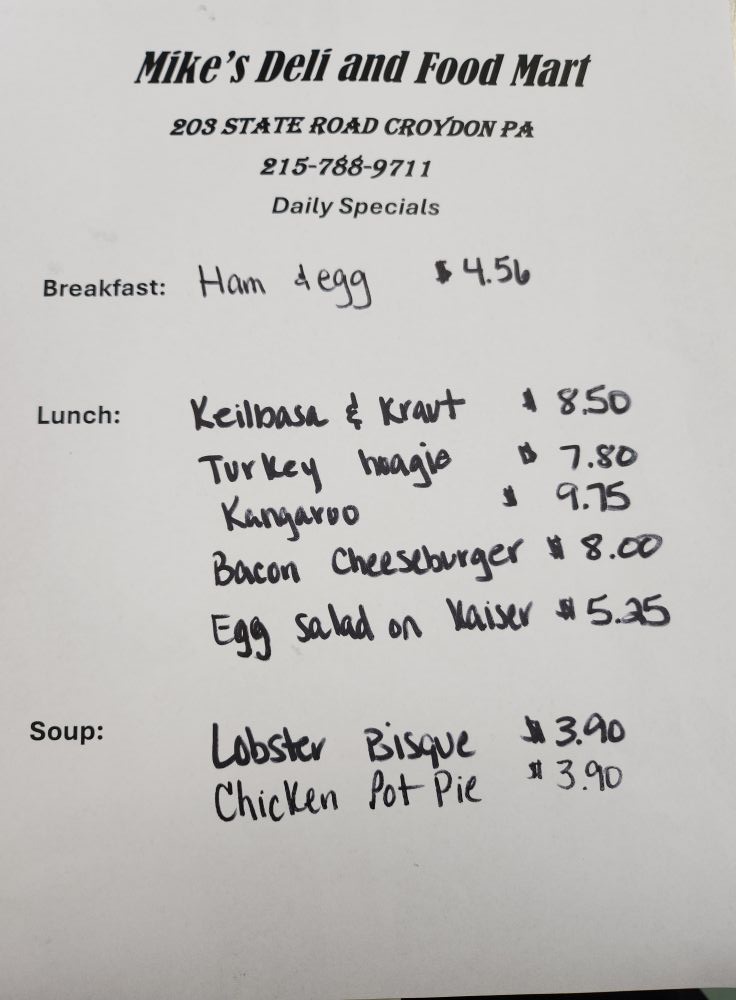 Mike's Deli and Food Mart
203 STATE ROAD CROYDON PA
215-788-9711
Daily Specials
Breakfast: Ham & egg $4.56
Lunch: Keilbasa & Kraut $8.50
Turkey hoagie $7.80
Kangaroo $9.75
Bacon Cheeseburger $8.00
Egg salad on Kaiser $5.25
Soup: Lobster Bisque $3.90
Chicken Pot Pie $3.90